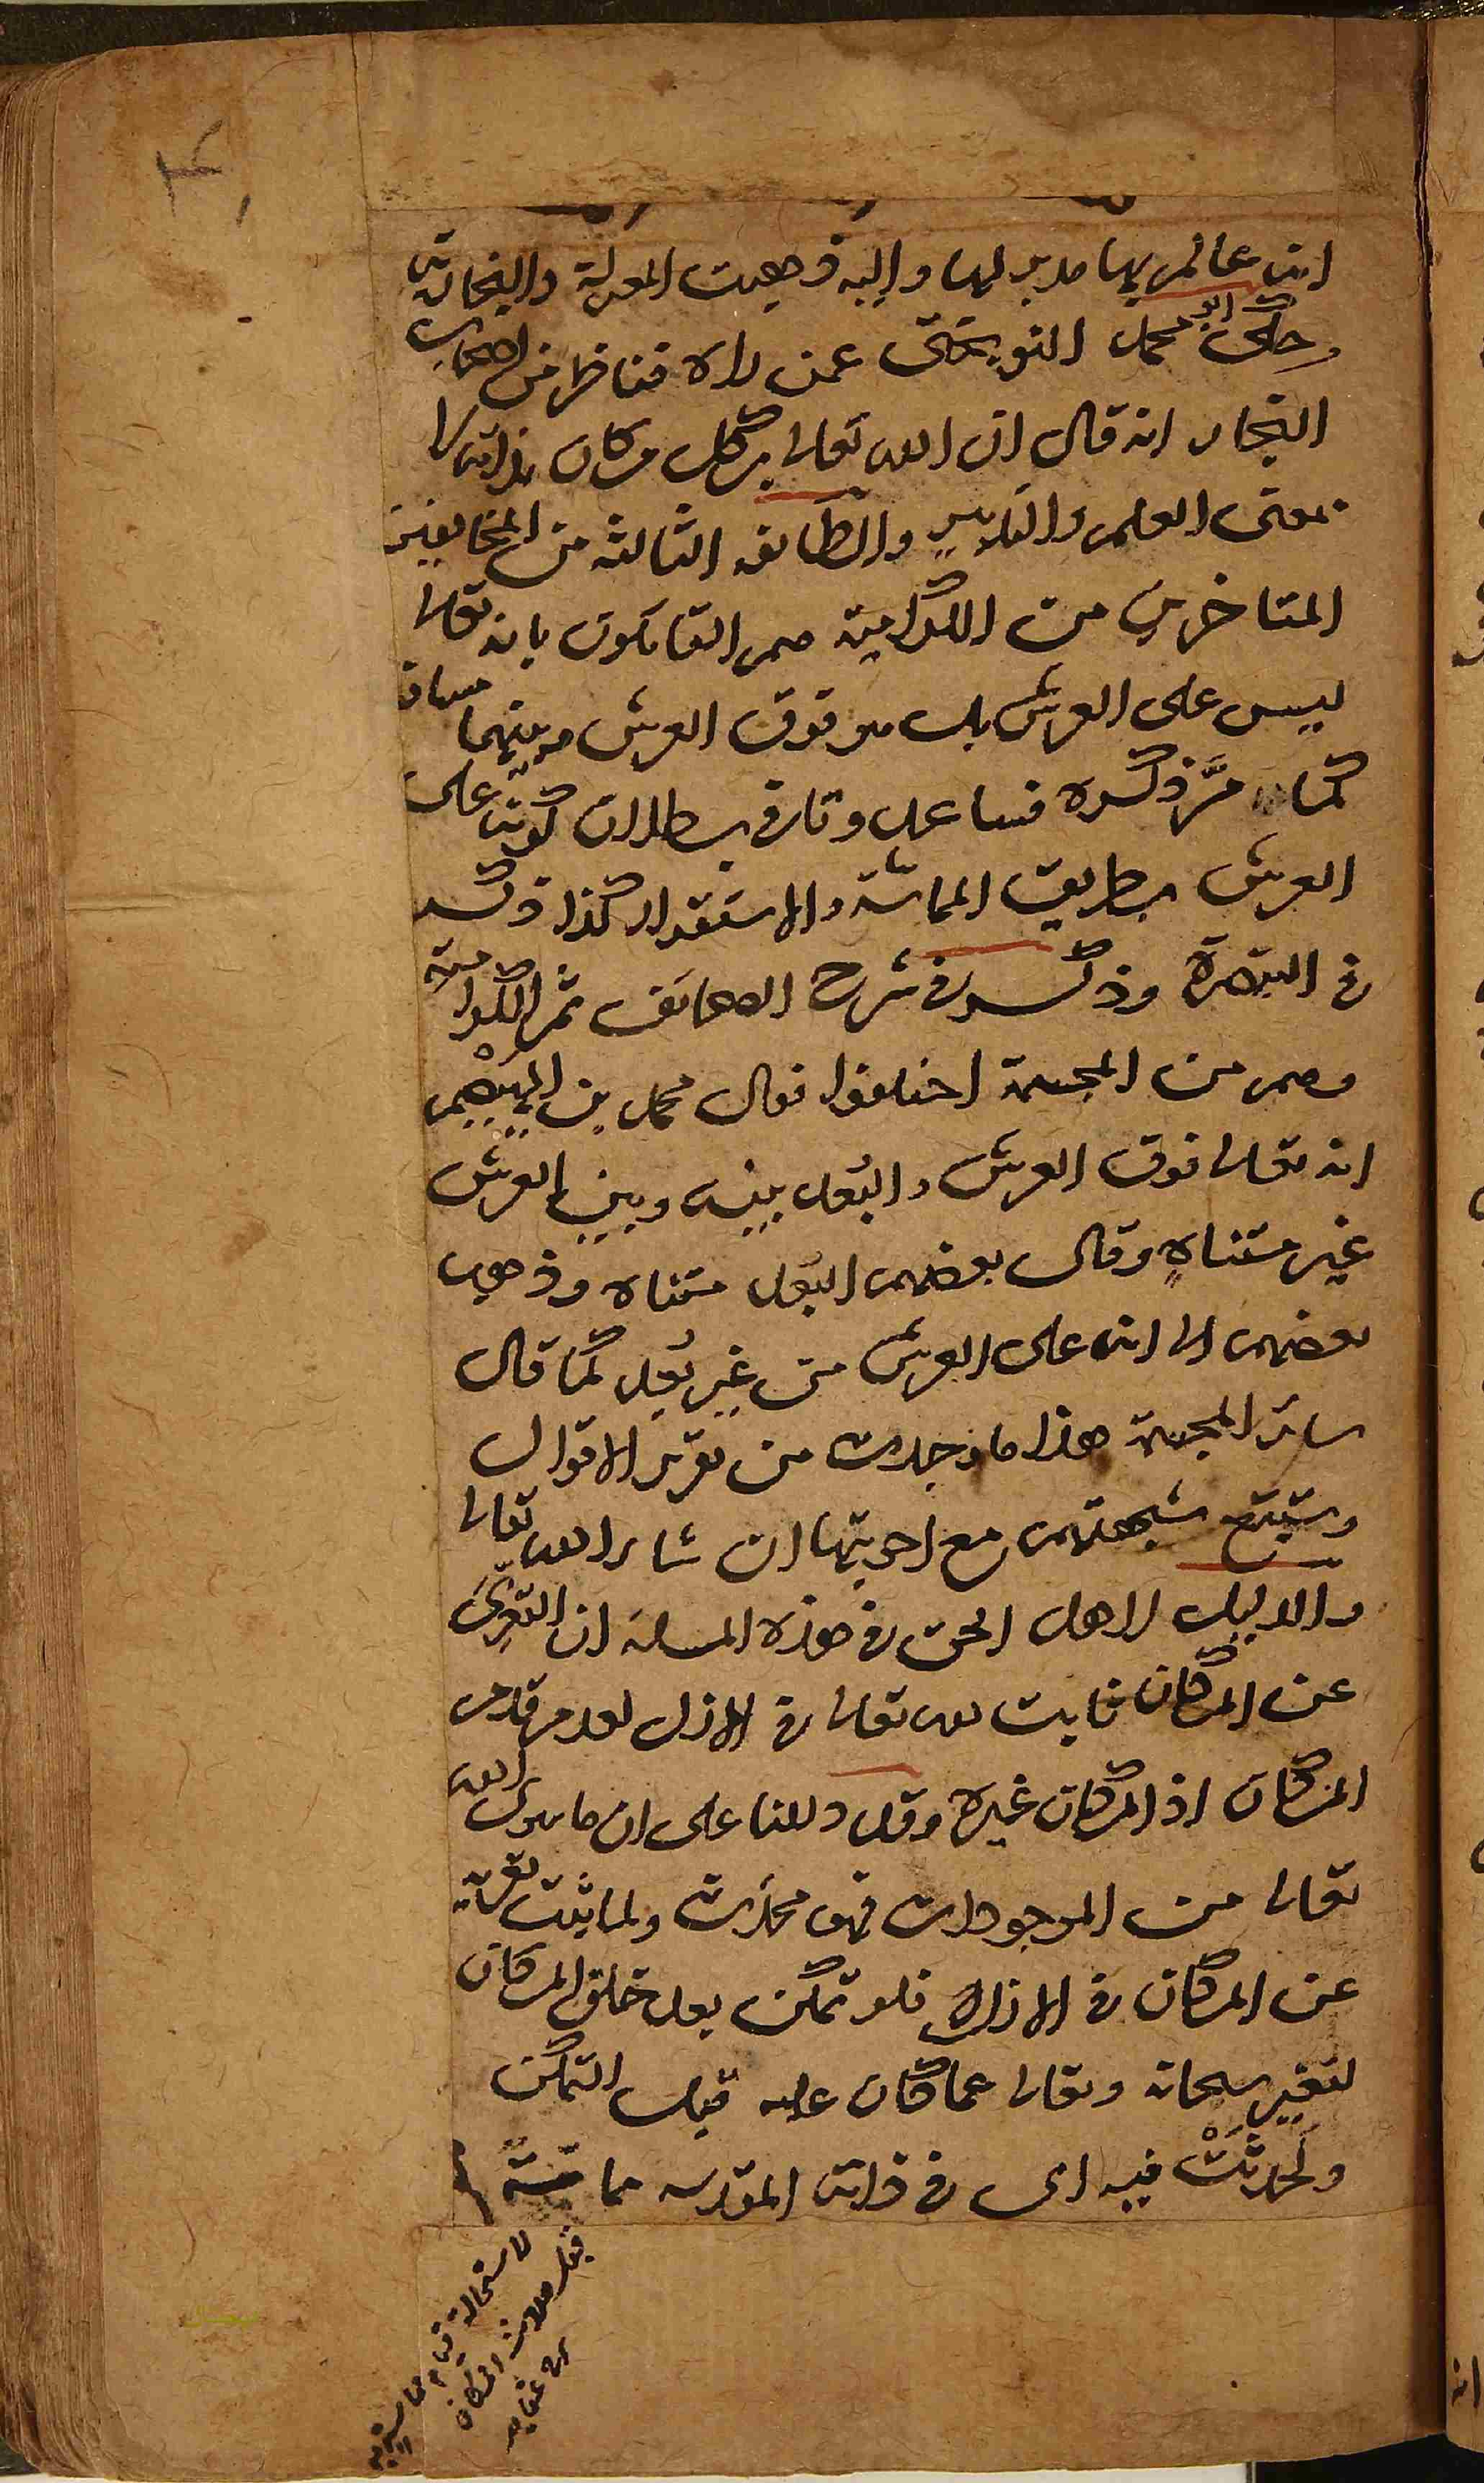 انه عالم بها مدبر لها واليه ذهبت المعتزلة والنجارية
وحكى ابو محمد النوبختى عمن رآه فناظر من اصحاب
النجار انه قال ان الله تعالى بكل مكان بذاته لا
بمعنى العلم والتدبير والطائفه الثالثه من المخالفين
المتاخرين من الكرامية هم القائلون بانه تعالى
ليس على العرش بل هو فوق العرش وبينهما مسافة
كما مَرَّ ذكره فساعدونا فى بطلان كونه على
العرش بطريق المماسّة والاستقرار كذا ذكر
فى التبصرة وذكر فى شرح الصحائف ثم الكرامية
وهم من المجسمة اختلفوا فقال محمد بن الهيْصم
انه تعالى فوق العرش والبُعد بينه وبين العرش
غير متناهٍ وقال بعضهم البُعد متناه وذهب
بعضهم الى انه على العرش من غير بُعد كما قال
سائر المجسمة هذا ما وجدت من تقرير الاقوال
وستتبع شبهتهم مع اجوبتها ان شاء الله تعالى
والدليل لاهل الحق فى هذه المسئلة ان التعرّىَ
عن المكان ثابت لله تعالى فى الازل لعدم قدم
المكان اذ المكان غيره وقد دللنا على ان ما سوى الله
تعالى من الموجودات فهو محدَث ولما ثبت تعريه
عن المكان فى الازل فلو تمكن بعد خلق المكان
لتغير سبحانه وتعالى عما كان عليه قبل التمكن
ولحدثَتْ فيه اى فى ذاته المقدسه مماسّة
لاستحالة قيام مماسته به
قبل حدوث المكان